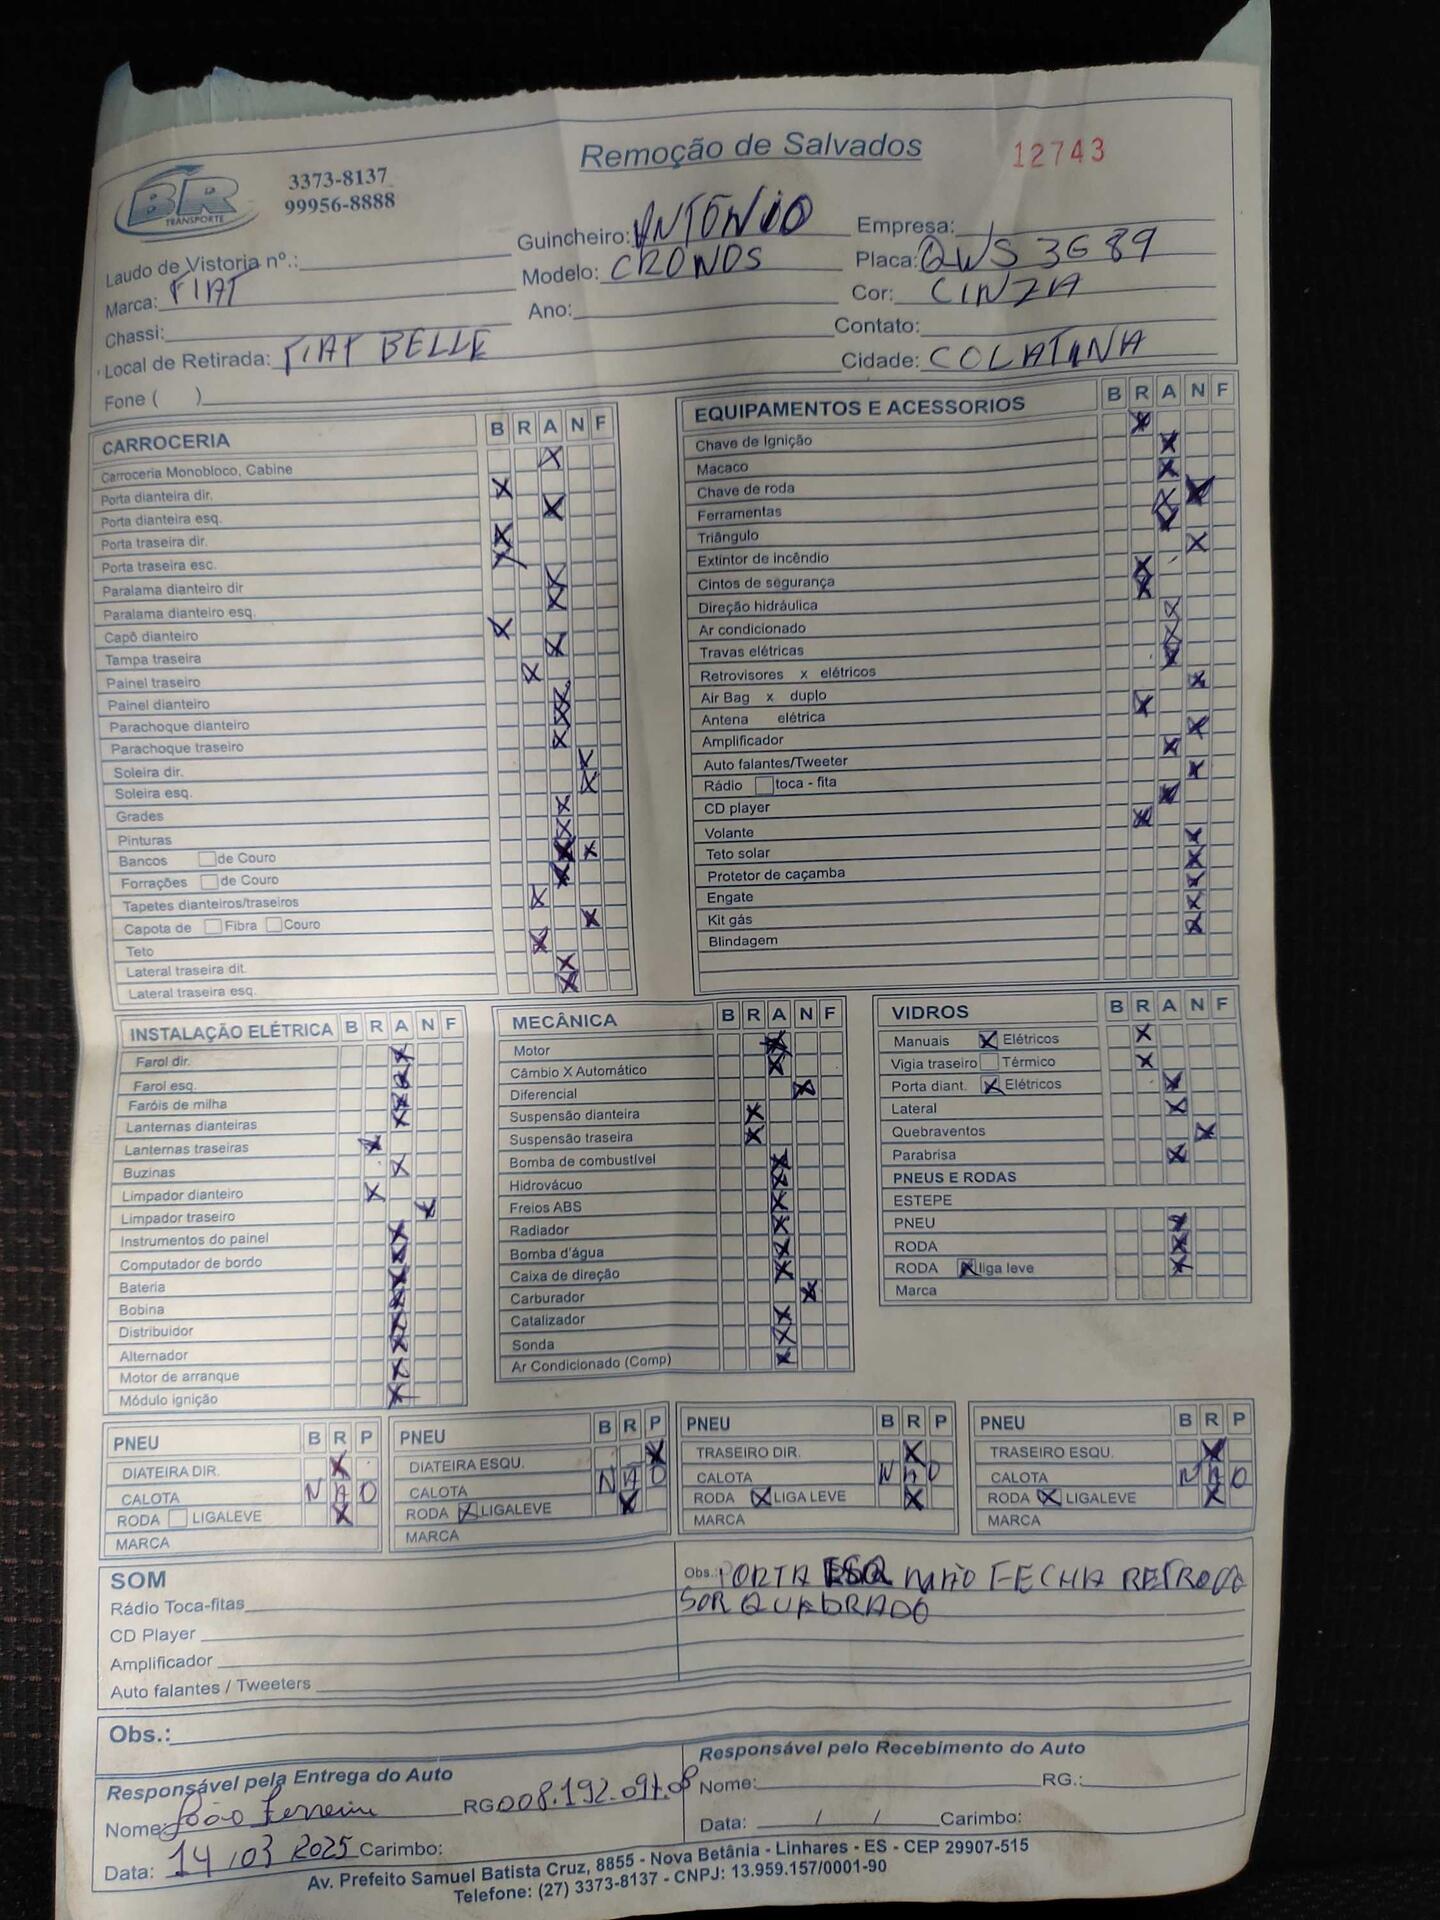 Remoção de Salvados
12743
BR
TRANSPORTE
3373-8137
99956-8888
Laudo de Vistoria nº.:
Guincheiro: ANTÔNIO
Empresa:
Marca: FIAT
Modelo: CRONOS
Placa: QWS 3G89
Chassi:
Ano:
Cor: CINZA
Local de Retirada: FIAT BELLE
Contato:
Fone ( )
Cidade: COLATINA
CARROCERIA B R A N F
Carroceria Monobloco, Cabine X
Porta dianteira dir. X
Porta dianteira esq. X
Porta traseira dir. X
Porta traseira esc. X
Paralama dianteiro dir X
Paralama dianteiro esq. X
Capô dianteiro X
Tampa traseira X
Painel traseiro X
Painel dianteiro X
Parachoque dianteiro X
Parachoque traseiro X
Soleira dir. X
Soleira esq. X
Grades X
Pinturas X
Bancos de Couro X X
Forrações de Couro X
Tapetes dianteiros/traseiros X
Capota de Fibra Couro X
Teto X
Lateral traseira dit. X
Lateral traseira esq. X
EQUIPAMENTOS E ACESSORIOS B R A N F
Chave de Ignição X
Macaco X
Chave de roda X
Ferramentas X X
Triângulo X
Extintor de incêndio X
Cintos de segurança X
Direção hidráulica X
Ar condicionado X
Travas elétricas X
Retrovisores x elétricos X
Air Bag x duplo X
Antena elétrica X
Amplificador X
Auto falantes/Tweeter X
Rádio toca - fita X
CD player X
Volante X
Teto solar X
Protetor de caçamba X
Engate X
Kit gás X
Blindagem X
INSTALAÇÃO ELÉTRICA B R A N F
Farol dir. X
Farol esq. X
Faróis de milha X
Lanternas dianteiras X
Lanternas traseiras X
Buzinas X
Limpador dianteiro X
Limpador traseiro X
Instrumentos do painel X
Computador de bordo X
Bateria X
Bobina X
Distribuidor X
Alternador X
Motor de arranque X
Módulo ignição X
MECÂNICA B R A N F
Motor X
Câmbio X Automático X
Diferencial X
Suspensão dianteira X
Suspensão traseira X
Bomba de combustível X
Hidrovácuo X
Freios ABS X
Radiador X
Bomba d'água X
Caixa de direção X
Carburador X
Catalizador X
Sonda X
Ar Condicionado (Comp) X
VIDROS B R A N F
Manuais X Elétricos X
Vigia traseiro Térmico X
Porta diant. X Elétricos X
Lateral X
Quebraventos X
Parabrisa X
PNEUS E RODAS
ESTEPE
PNEU X
RODA X
RODA X liga leve X
Marca
PNEU B R P
DIATEIRA DIR. X
CALOTA NÃO
RODA LIGALEVE X
MARCA
PNEU B R P
DIATEIRA ESQU. X
CALOTA NÃO
RODA X LIGALEVE X
MARCA
PNEU B R P
TRASEIRO DIR. X
CALOTA NÃO
RODA X LIGA LEVE X
MARCA
PNEU B R P
TRASEIRO ESQU. X
CALOTA NÃO
RODA X LIGALEVE X
MARCA
SOM
Rádio Toca-fitas
CD Player
Amplificador
Auto falantes / Tweeters
Obs.: PORTA ESQ NÃO FECHA RETROVI
SOR QUADRADO
Obs.:
Responsável pela Entrega do Auto
Nome: João Ferreira RG 008.192.097.08
Data: 14/03 2025 Carimbo:
Responsável pelo Recebimento do Auto
Nome: RG.:
Data: / / Carimbo:
Av. Prefeito Samuel Batista Cruz, 8855 - Nova Betânia - Linhares - ES - CEP 29907-515
Telefone: (27) 3373-8137 - CNPJ: 13.959.157/0001-90